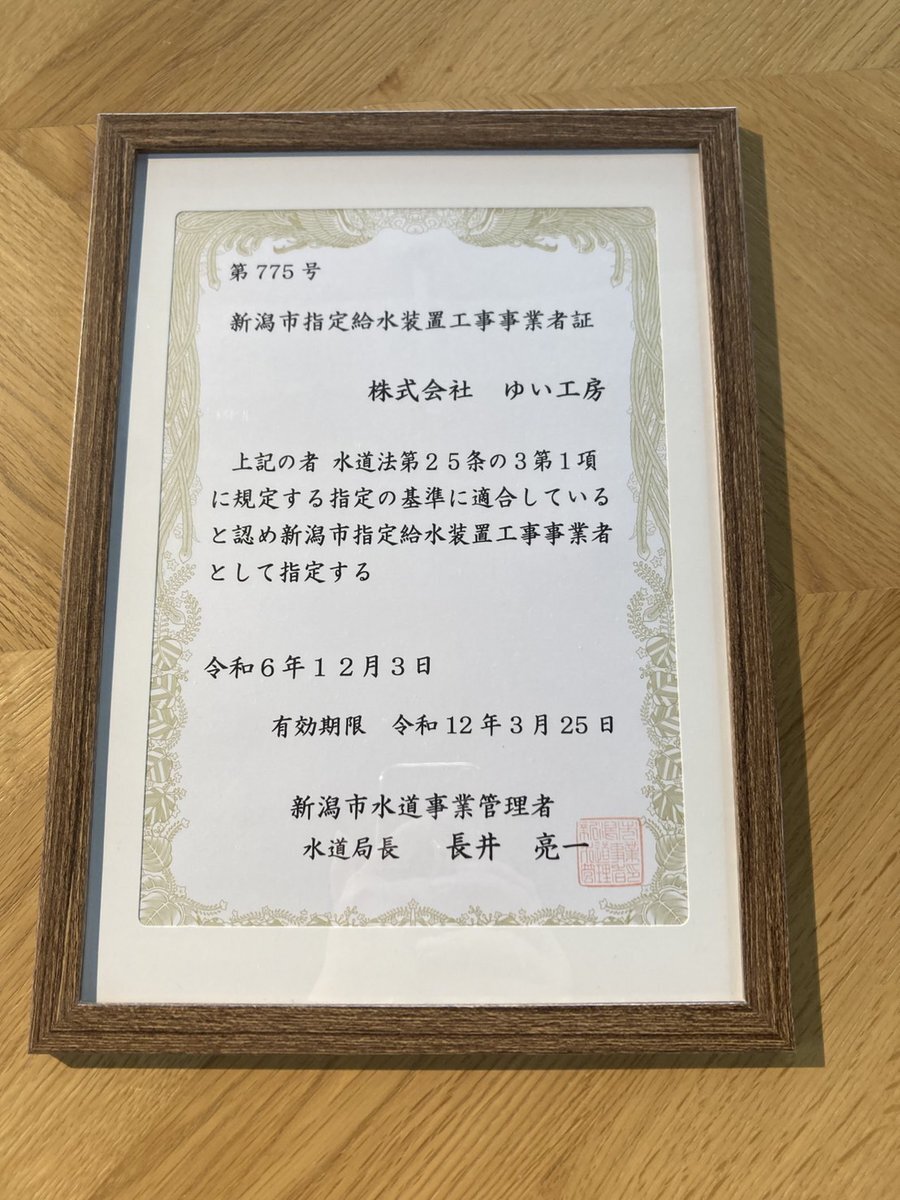 第 775 号
新潟市指定給水装置工事事業者証
株式会社　ゆい工房
上記の者 水道法第２５条の３第１項
に規定する指定の基準に適合している
と認め新潟市指定給水装置工事事業者
として指定する
令和６年１２月３日
有効期限　令和 12 年 3 月 25 日
新潟市水道事業管理者
水道局長　長井　亮一